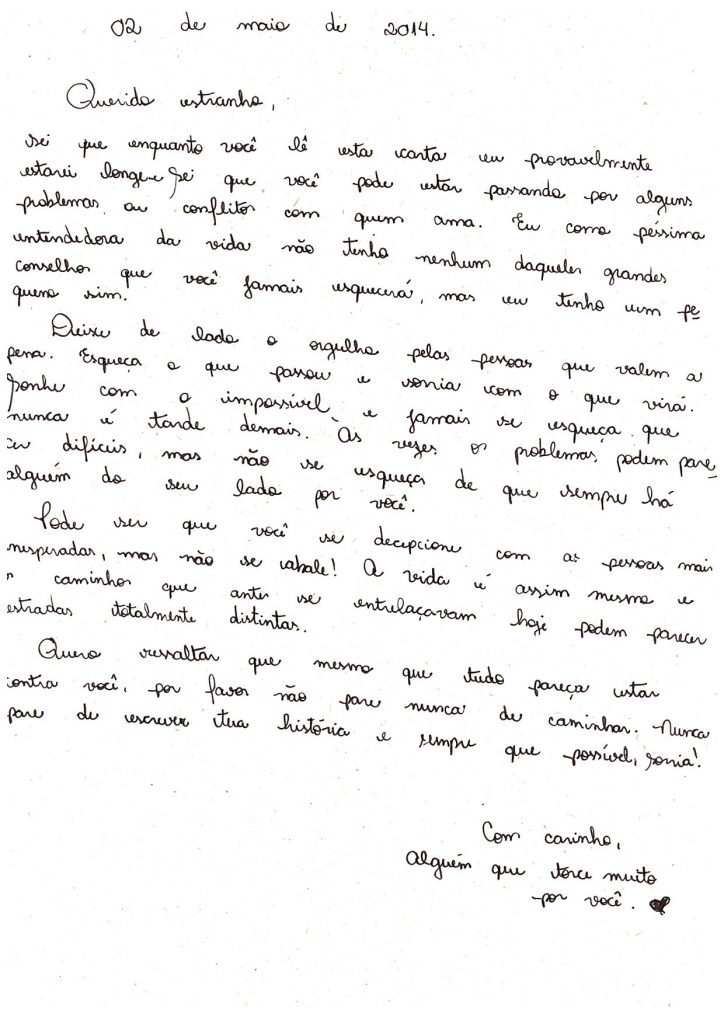 02 de maio de 2014.
Querido estranho,
Sei que enquanto você lê esta carta eu provavelmente
estarei longe e sei que você pode estar passando por alguns
problemas ou conflitos com quem ama. Eu como péssima
entendedora da vida não tenho nenhum daqueles grandes
conselhos que você jamais esquecerá, mas eu tenho um pe
queno sim.
Deixe de lado o orgulho pelas pessoas que valem a
pena. Esqueça o que passou e sorria com o que virá.
Sonhe com o impossível e jamais se esqueça que
nunca é tarde demais. Às vezes os problemas podem pare
cer difíceis, mas não se esqueça de que sempre há
alguém do seu lado por você.
Pode ser que você se decepcione com as pessoas mais
inesperadas, mas não se abale! A vida é assim mesmo e
os caminhos que antes se entrelaçavam hoje podem parecer
estradas totalmente distintas.
Quero ressaltar que mesmo que tudo pareça estar
contra você, por favor não pare nunca de caminhar. Nunca
pare de escrever tua história e sempre que possível, sorria!
Com carinho,
Alguém que torce muito
por você.